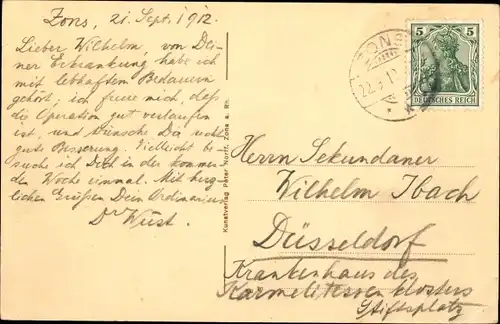 Zons, 21. Sept. 1912.
Lieber Wilhelm, von Dei-
ner Erkrankung habe ich
mit lebhaftem Bedauern
gehört; ich freue mich, daß
die Operation gut verlaufen
ist, und wünsche Dir recht
gute Besserung. Vielleicht be-
suche ich Dich in der kommen-
den Woche einmal. Mit herz-
lichen Grüßen Dein Ordinarius
Dr Wüst.
Kunstverlag Peter Norff, Zons a. Rh.
ZONS
5 5
DEUTSCHES REICH
Herrn Sekundaner
Wilhelm Ibach
Düsseldorf
Krankenhaus des
Karmelitessenklosters
Stiftsplatz